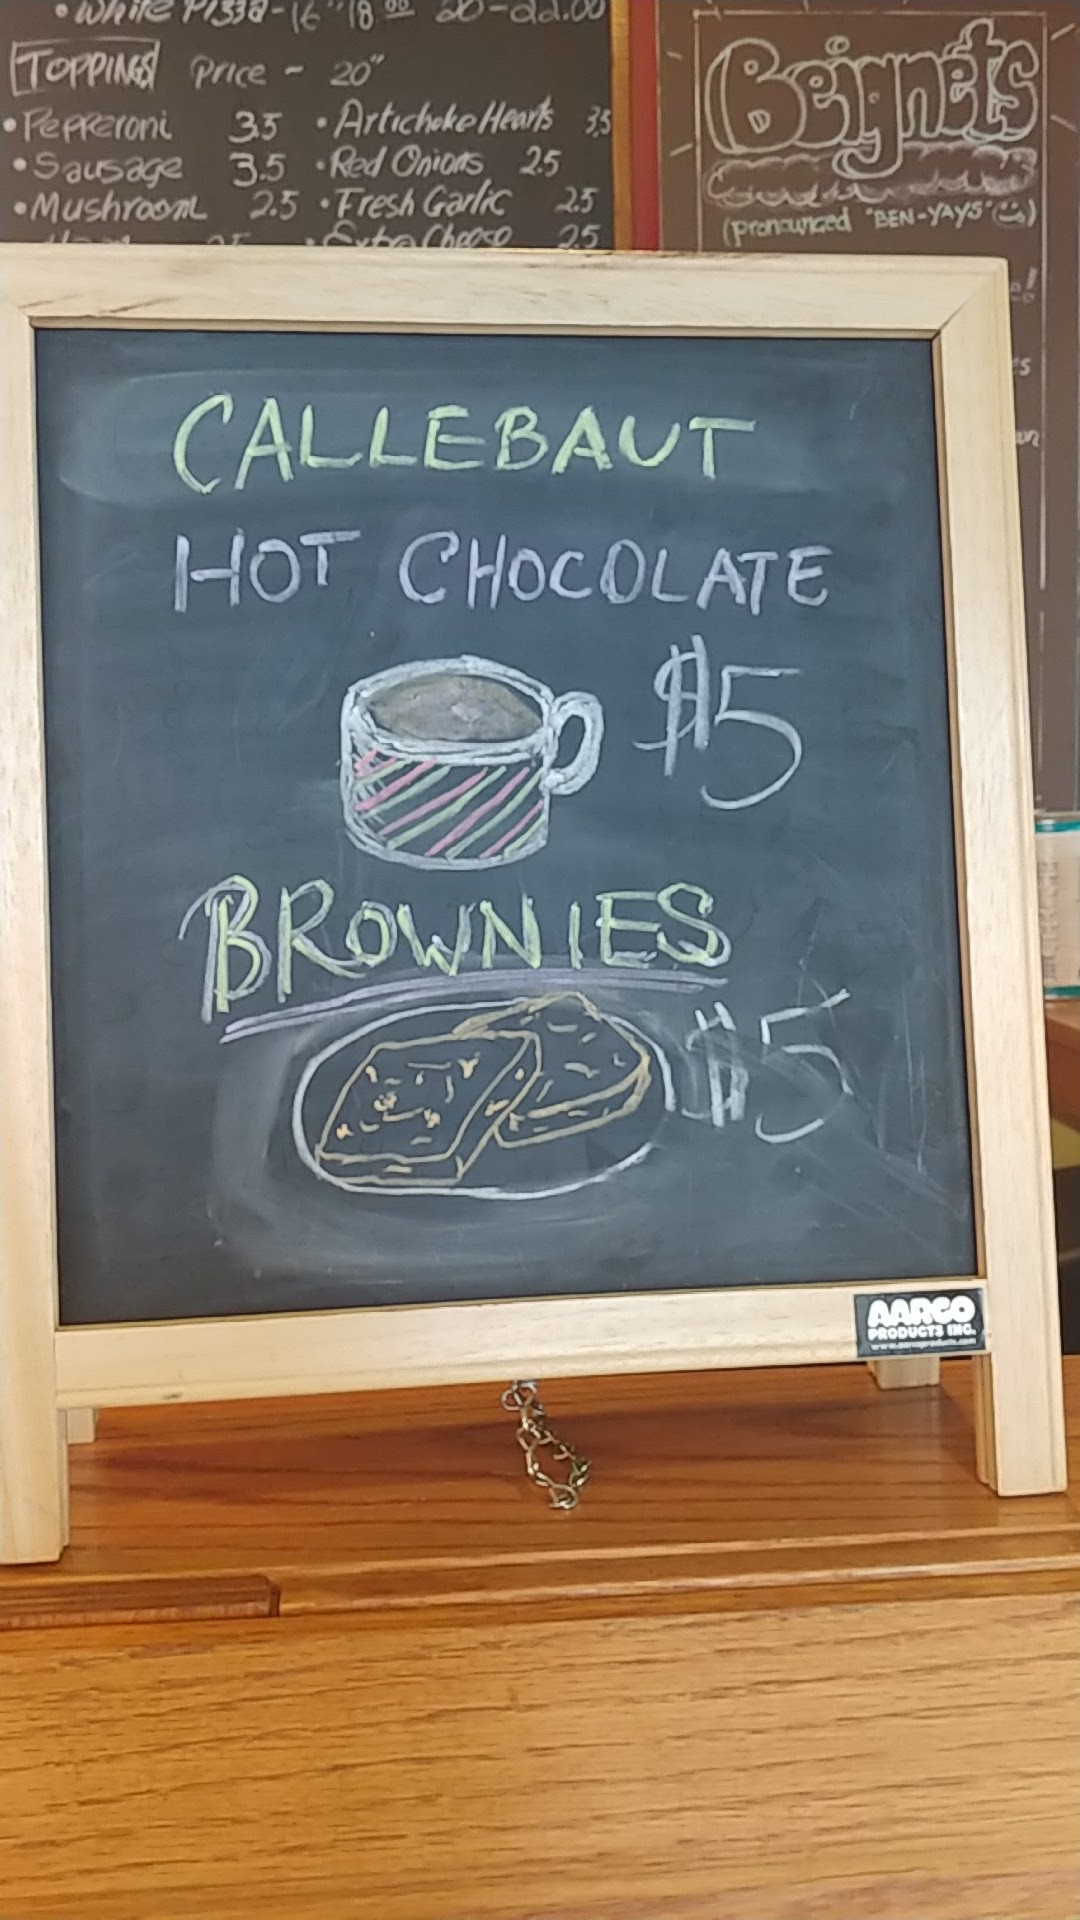 • White Pizza - 16" 18 00 20 - 22.00
TOPPINGS Price - 20"
• Pepperoni 3.5 • Artichoke Hearts 3.5
• Sausage 3.5 • Red Onions 2.5
• Mushroom 2.5 • Fresh Garlic 2.5
• Extra Cheese 2.5
Beignets
(pronounced "BEN-YAYS" )
CALLEBAUT
HOT CHOCOLATE
$5
BROWNIES
$5
AARCO
PRODUCTS INC.
www.aarcoproducts.com